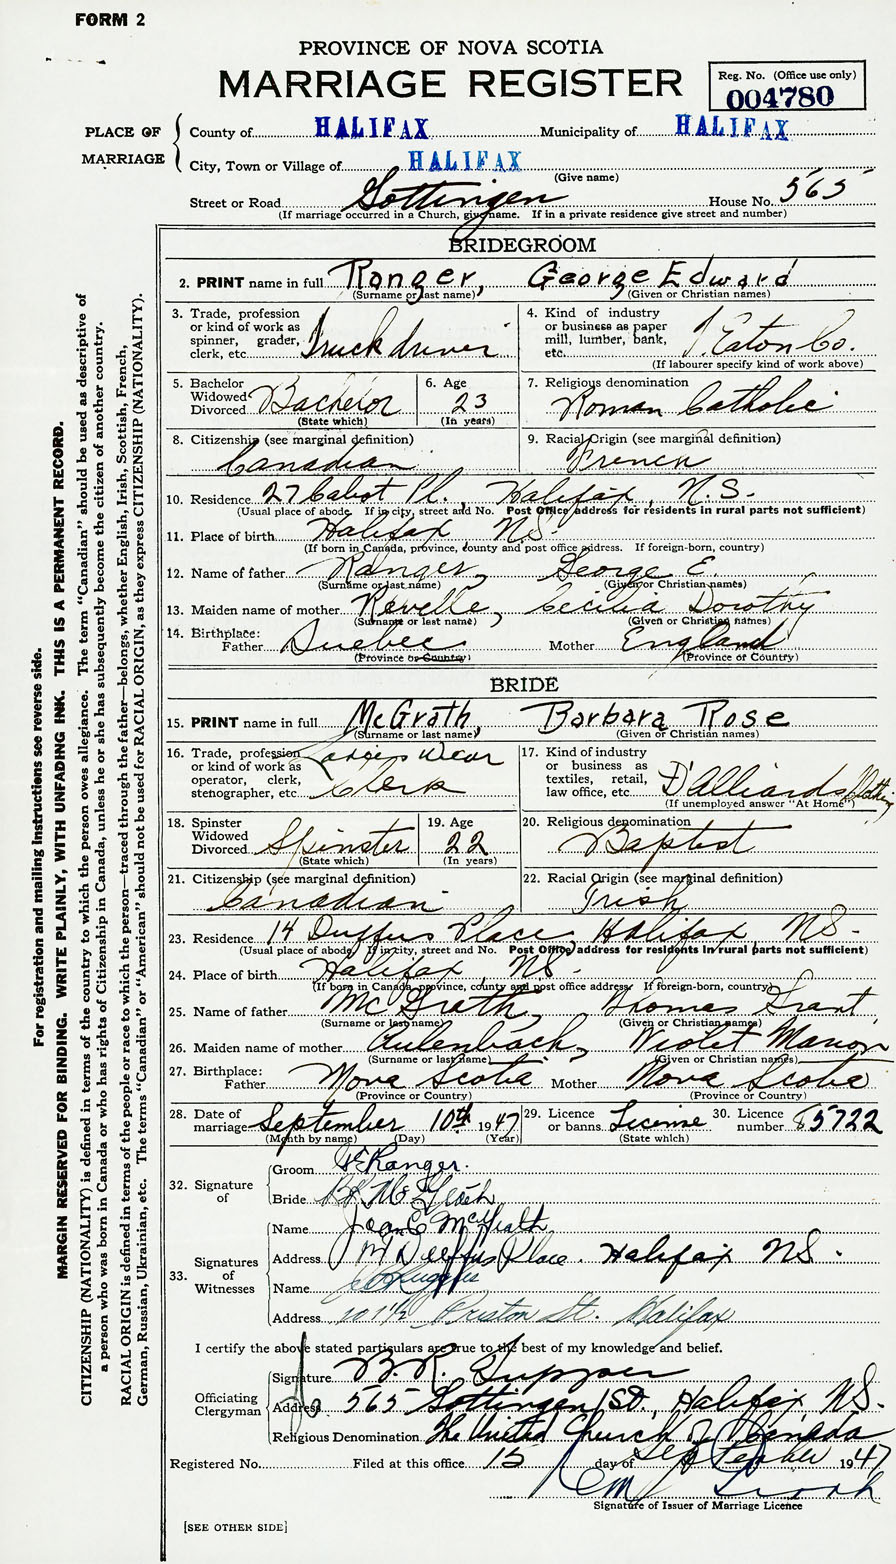 FORM 2
PROVINCE OF NOVA SCOTIA
MARRIAGE REGISTER
Reg. No. (Office use only)
004780
PLACE OF MARRIAGE
County of HALIFAX Municipality of HALIFAX
City, Town or Village of HALIFAX
(Give name)
Street or Road Gottingen House No. 565
(If marriage occurred in a Church, give name. If in a private residence give street and number)
BRIDEGROOM
2. PRINT name in full Ranger, George Edward
(Surname or last name) (Given or Christian names)
3. Trade, profession or kind of work as spinner, grader, clerk, etc. Truck driver
4. Kind of industry or business as paper mill, lumber, bank, etc. T. Eaton Co.
(If labourer specify kind of work above)
5. Bachelor Widowed Divorced Bachelor
(State which)
6. Age 23
(In years)
7. Religious denomination
Roman Catholic
8. Citizenship (see marginal definition)
Canadian
9. Racial Origin (see marginal definition)
French
10. Residence 27 Cabot Pl., Halifax, N.S.
(Usual place of abode. If in city, street and No. Post Office address for residents in rural parts not sufficient)
11. Place of birth Halifax NS.
(If born in Canada, province, county and post office address. If foreign-born, country)
12. Name of father Ranger, George E.
(Surname or last name) (Given or Christian names)
13. Maiden name of mother Revelle, Cecilia Dorothy
(Surname or last name) (Given or Christian names)
14. Birthplace:
Father Quebec Mother England
(Province or Country) (Province of Country)
BRIDE
15. PRINT name in full McGrath, Barbara Rose
(Surname or last name) (Given or Christian names)
16. Trade, profession or kind of work as operator, clerk, stenographer, etc. Ladies Wear Clerk
17. Kind of industry or business as textiles, retail, law office, etc. D'Alliards
(If unemployed answer "At Home")
18. Spinster Widowed Divorced Spinster
(State which)
19. Age 22
(In years)
20. Religious denomination
Baptist
21. Citizenship (see marginal definition)
Canadian
22. Racial Origin (see marginal definition)
Irish
23. Residence 14 Duffus Place, Halifax NS.
(Usual place of abode. If in city, street and No. Post Office address for residents in rural parts not sufficient)
24. Place of birth Halifax, NS.
(If born in Canada, province, county and post office address. If foreign-born, country)
25. Name of father McGrath, Thomas Grant
(Surname or last name) (Given or Christian names)
26. Maiden name of mother Aulenback, Violet Marion
(Surname or last name) (Given or Christian names)
27. Birthplace:
Father Nova Scotia Mother Nova Scotia
(Province or Country) (Province or Country)
28. Date of marriage September 10th 1947
(Month by name) (Day) (Year)
29. Licence or banns License
(State which)
30. Licence number 85722
32. Signature of
Groom Ranger.
Bride B.R. McGrath
33. Signatures of Witnesses
Name Jean E McGrath
Address 14 Duffus Place. Halifax NS.
Name
Address 101½ Preston St. Halifax
I certify the above stated particulars are true to the best of my knowledge and belief.
Officiating Clergyman
Signature B.R. Tupper
Address 565 Gottingen St, Halifax, NS.
Religious Denomination The United Church of Canada
Registered No. Filed at this office 15 day of September 1947
Signature of Issuer of Marriage Licence
[SEE OTHER SIDE]
For registration and mailing instructions see reverse side.
MARGIN RESERVED FOR BINDING. WRITE PLAINLY, WITH UNFADING INK. THIS IS A PERMANENT RECORD.
CITIZENSHIP (NATIONALITY) is defined in terms of the country to which the person owes allegiance. The term "Canadian" should be used as descriptive of
a person who was born in Canada or who has rights of Citizenship in Canada, unless he or she has subsequently become the citizen of another country.
RACIAL ORIGIN is defined in terms of the people or race to which the person—traced through the father—belongs, whether English, Irish, Scottish, French,
German, Russian, Ukrainian, etc. The terms "Canadian" or "American" should not be used for RACIAL ORIGIN, as they express CITIZENSHIP (NATIONALITY).